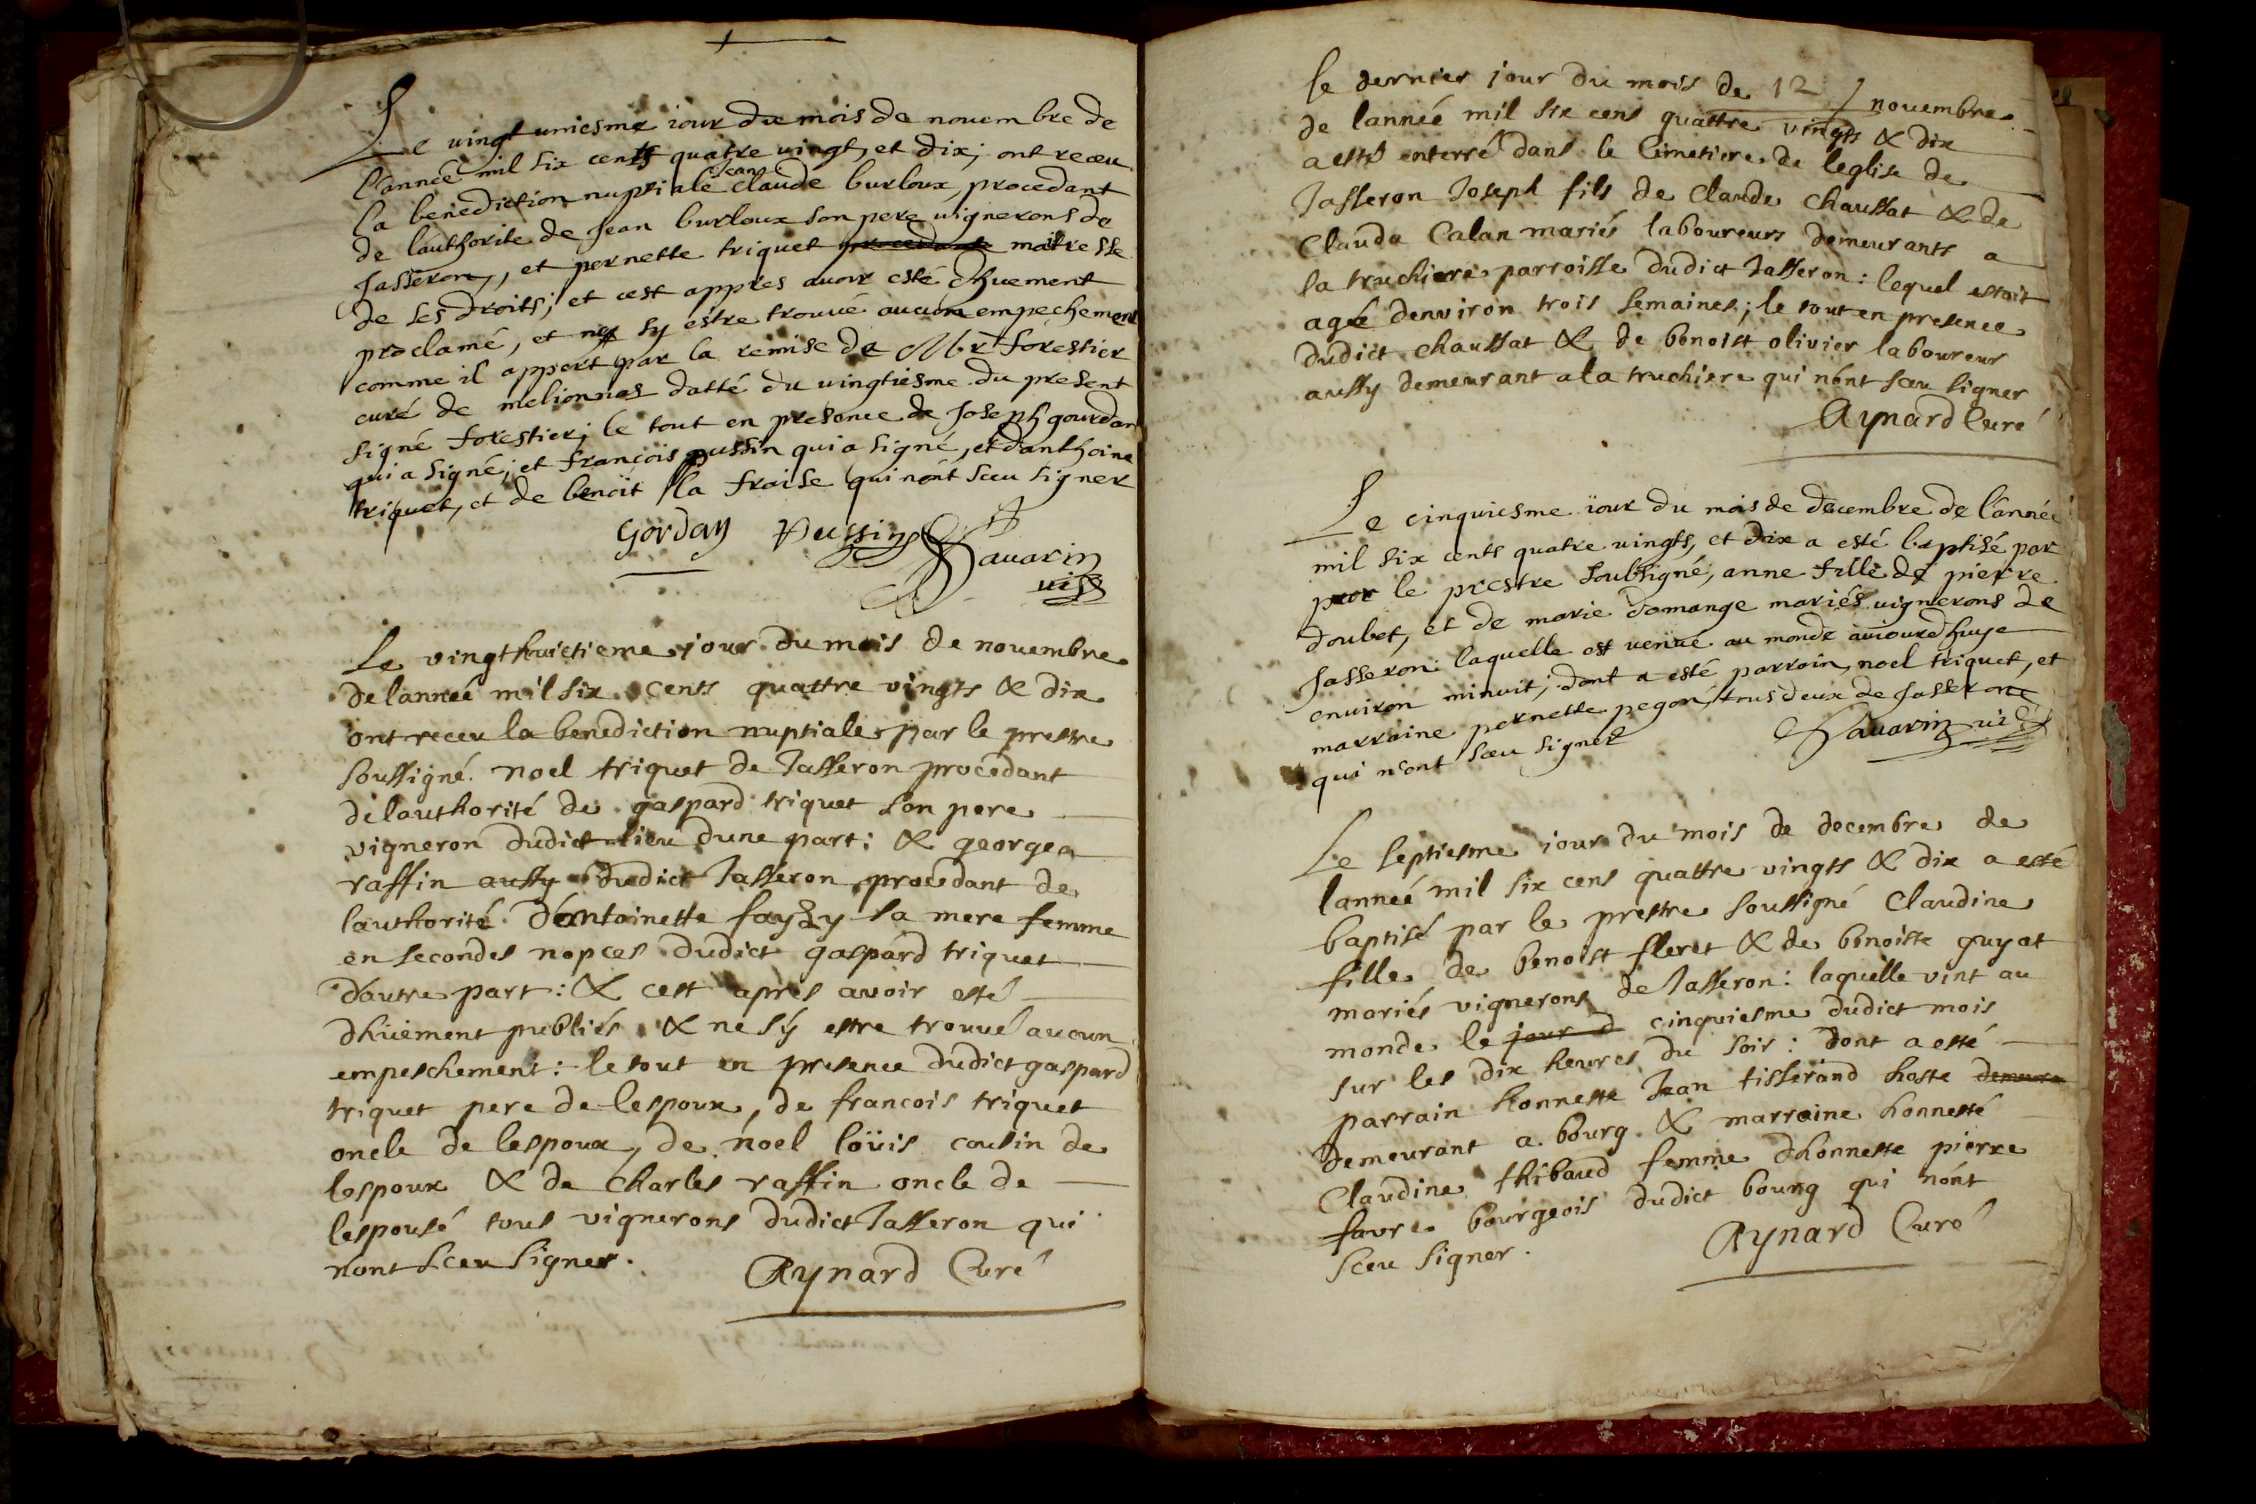 Le vingt uniesme iour du mois de nouembre de
l'année mil six cents quatre uingt, et dix; ont receu
la benediction nuptiale Jean claude burloux, procedant
de lauthorite de Jean burloux son pere uignerons de
Jasseron,, et pernette triquet procedante maitresse
de ses droits; et cest appres auoir esté dhuement
proclamé, et ne sy estre trouué aucun empechement
comme il appert par la remise de Mbr forestier
curé de melionnas datté du uingtiesme du present
signé forestier; le tout en presence de Joseph gourdan
qui a signé; et francois pussin qui a signé, et danthoine
triquet, et de benoit la fraise qui nont sceu signer
Gorday Pussin Sauarin
uise
Le vingthuictieme jour du mois de nouembre
de lanneé mil six cents quattre vingts & dix
ont receu la benediction nuptiale par le prestre
soussigné noel triquet de Jasseron procedant
de lauthorité de gaspard triquet son pere
vigneron dudict lieu dune part: & georgea
raffin aussy dudict Jasseron procedant de
lauthorité d'antoinette fayzy sa mere femme
en secondes nopces dudict gaspard triquet
d'autre part: & cest apres avoir esté
dhüement publiés & ne sÿ estre trouué aucun
empeschement: le tout en presence dudict gaspard
triquet pere de lespoux, de francois triquet
oncle de lespoux, de noel loüis cousin de
lespoux & de charles raffin oncle de
lespousé tous vignerons dudict Jasseron qui
nont sceu signer.
Aynard Curé
le dernier jour du mois de 12 nouembre
de lanneé mil six cens quattre vingts & dix
a esté enterré dans le Cimetiere de leglise de
Jasseron Joseph fils de Claude chaussat & de
Clauda Calan mariés laboureurs demeurants a
la truchiere parroisse dudict Jasseron: lequel estoit
agé denviron trois semaines; le tout en presence
dudict chaussat & de benoist olivier laboureur
aussy demeurant a la truchiere qui nont sceu signer
Aynard Curé
Le cinquiesme iour du mois de decembre de l'année
mil six cents quatre uingts, et dix a esté baptisé par
par le prestre soubsigné, anne fille de pierre
doubet, et de marie domange mariés uignerons de
Jasseron: laquelle est venüe au monde auiourdhuye
enuiron minuit; dont a esté parrain, noel triquet, et
marraine pernette pegon, tous deux de Jasseron
qui n'ont sceu signer
Sauarin uise
Le septiesme iour du mois de decembre de
lanneé mil six cens quattre vingts & dix a esté
baptisé par le prestre soussigné Claudine
fille de benoist fleret & de benoiste guyat
mariés vignerons de Jasseron: laquelle vint au
monde le jour d cinquiesme dudict mois
sur les dix heures du soir: dont a esté
parrain honneste Jean tisserand hoste demeura
demeurant a bourg & marraine honnesté
Claudine thibaud femme dhonneste pierre
favre bourgeois dudict bourg qui nont
sceu signer.
Aynard Curé